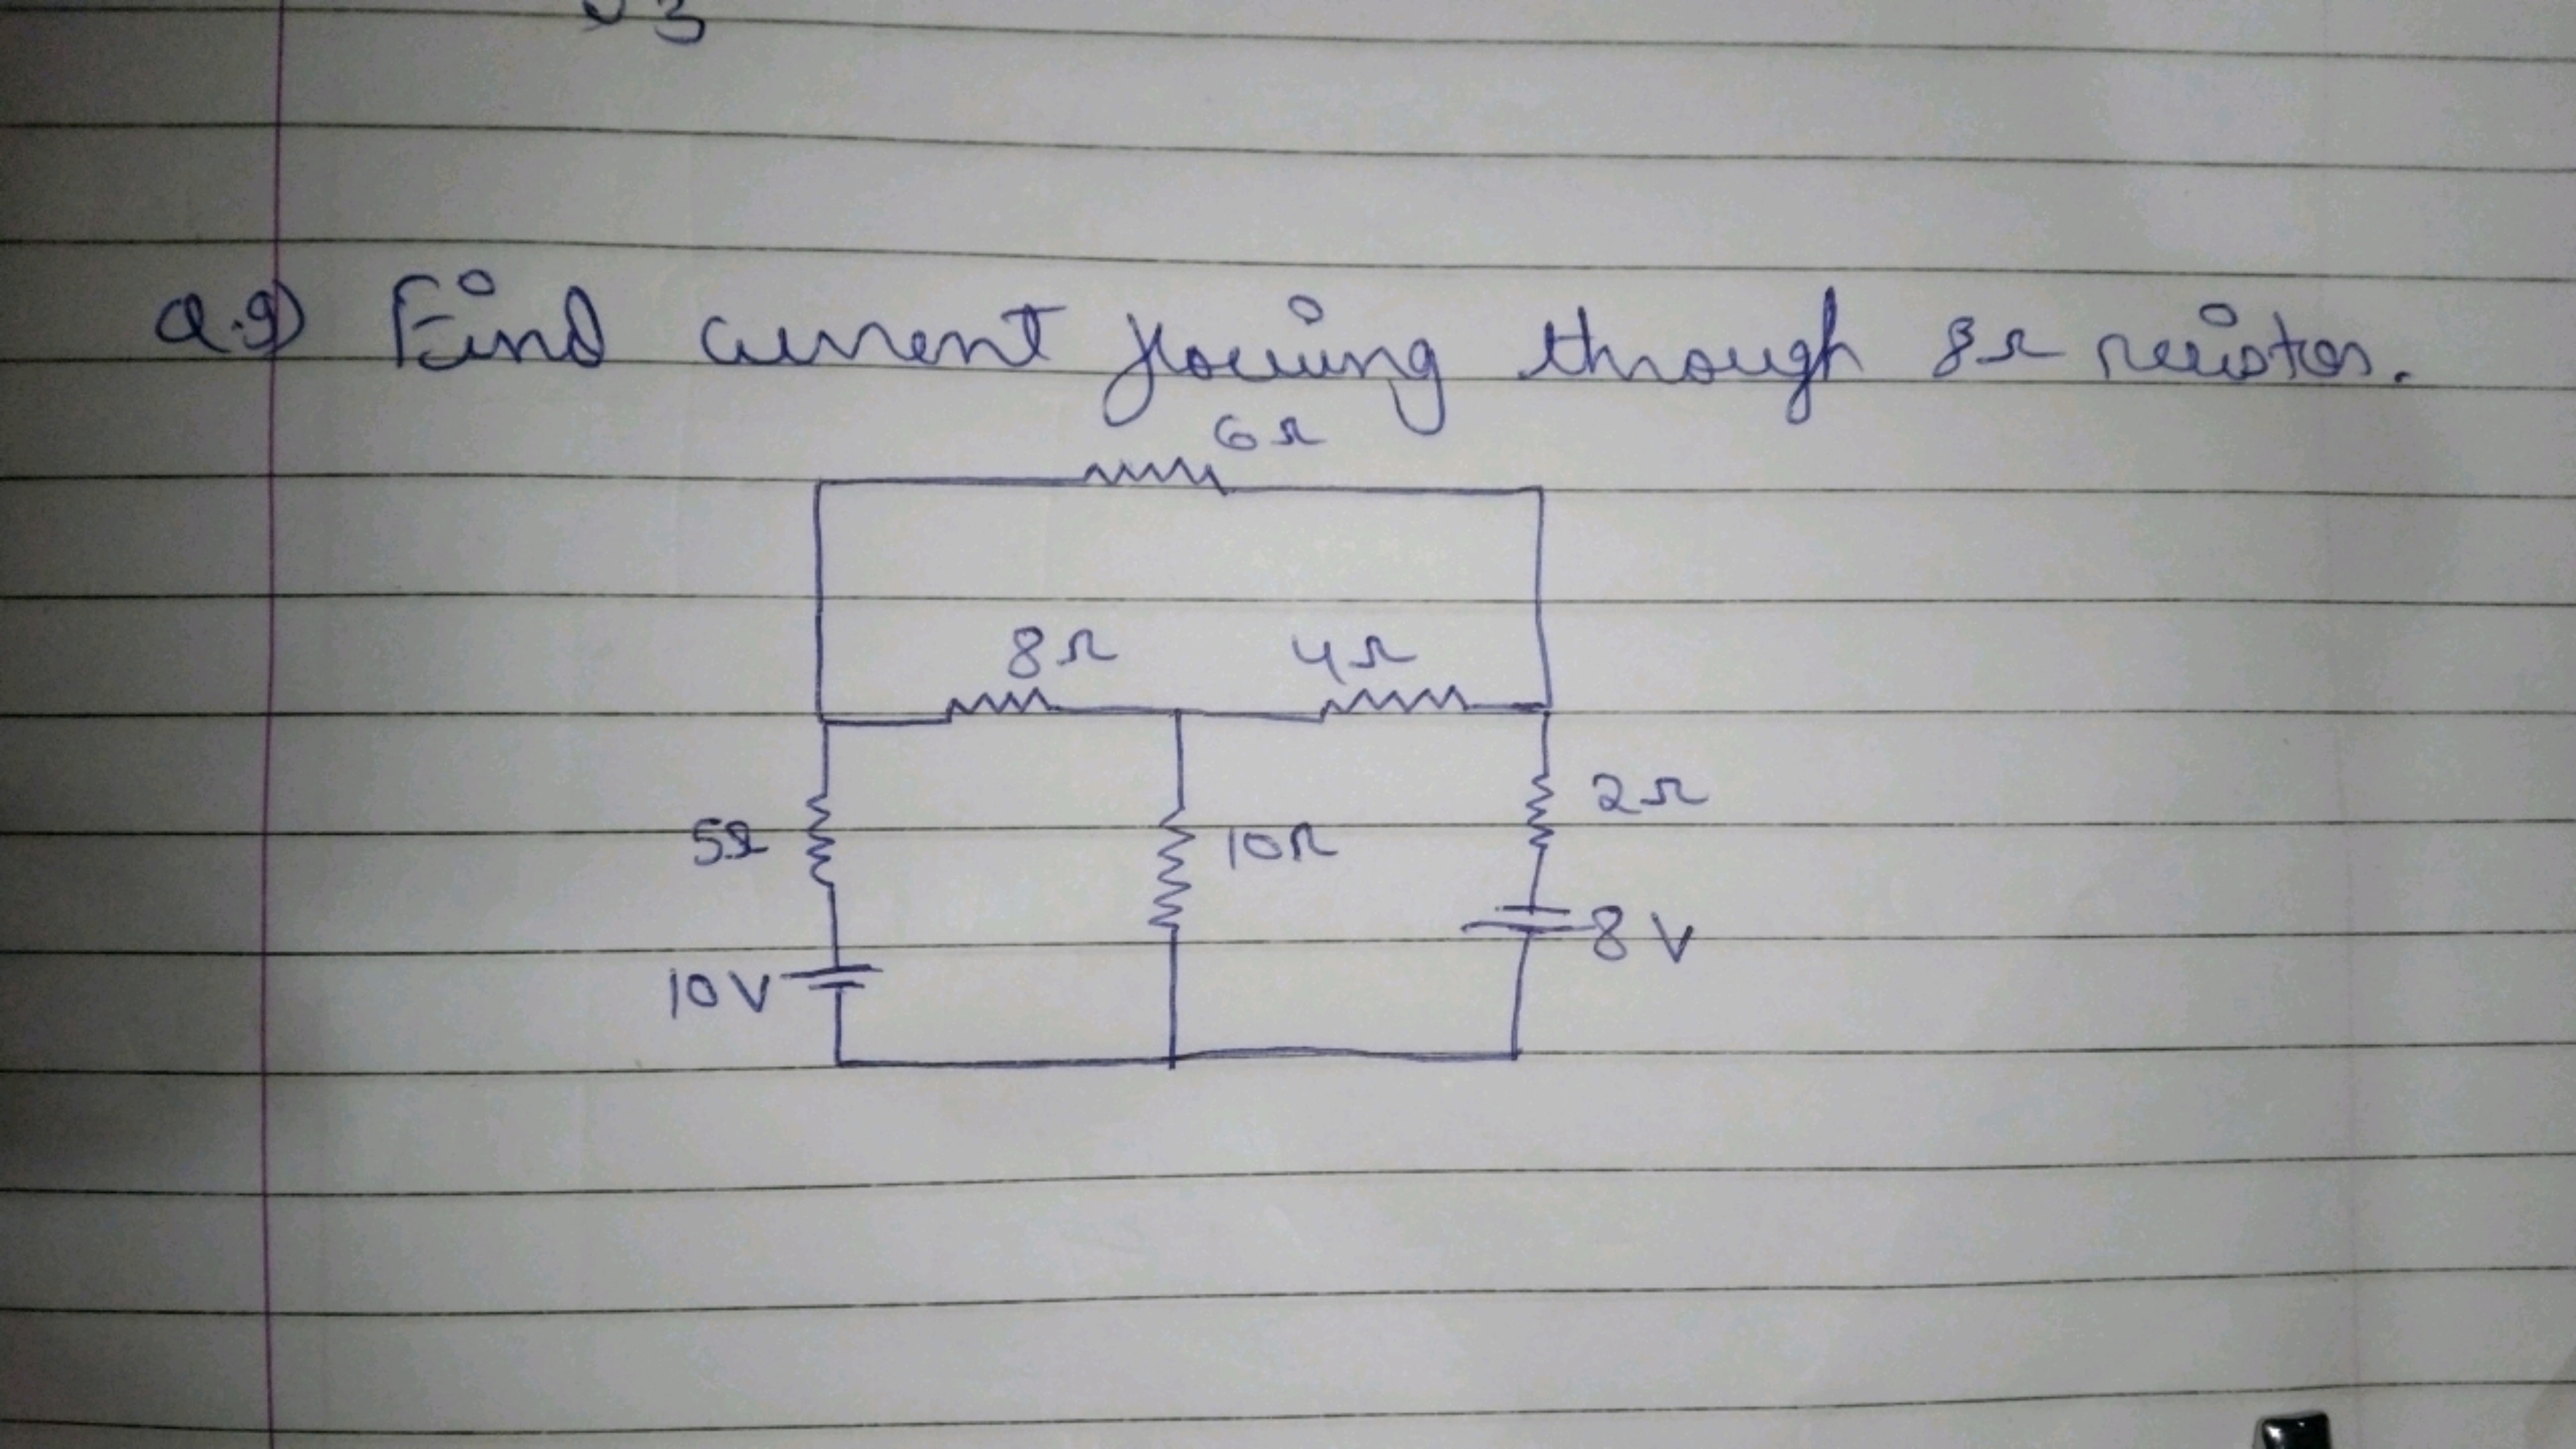 Q.9) Find current flowing through 8Ω resistor.
6Ω
8Ω 4Ω
5Ω 10Ω 2Ω
10V 8V